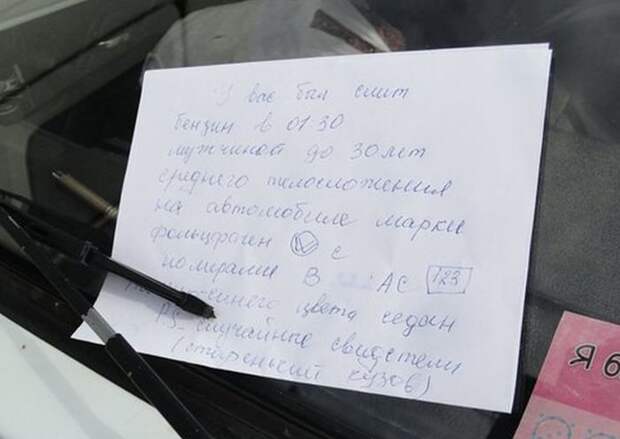 У вас был слит
бензин в 01:30
мужчиной до 30 лет
среднего телосложения
на автомобиле марки
фольцваген с
номерами В АС 123
синего цвета седан
P.S. случайные свидетели
(старенький кузов)
Я